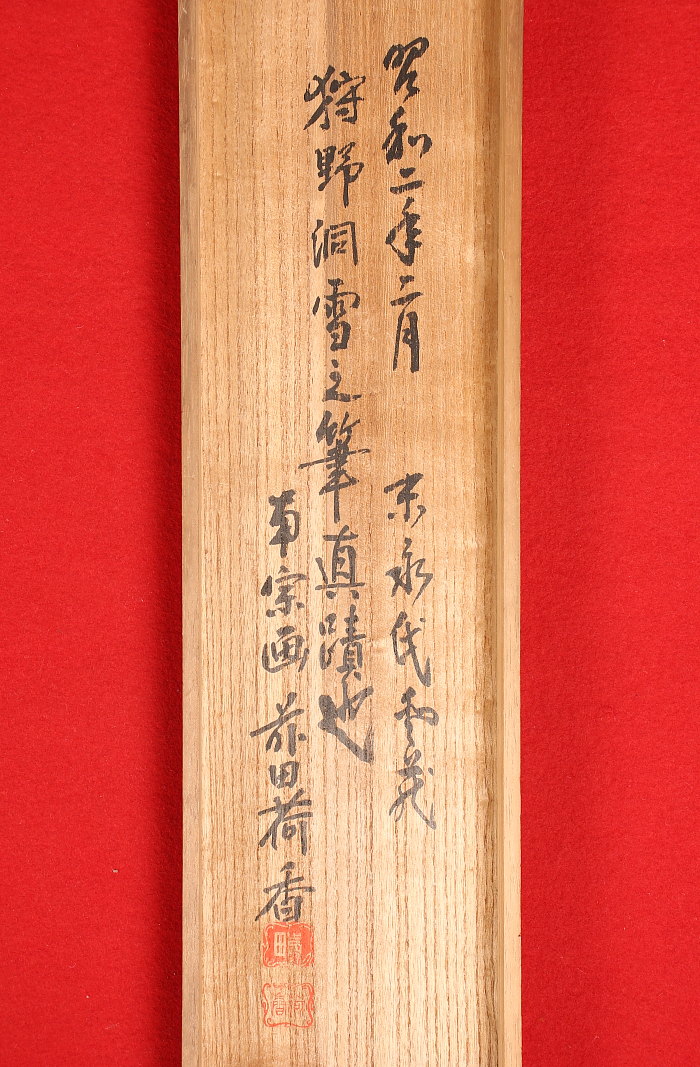 昭和二年二月 末永氏
狩野洞雪之筆真蹟也
南宗画 前田荷香
前田
荷香